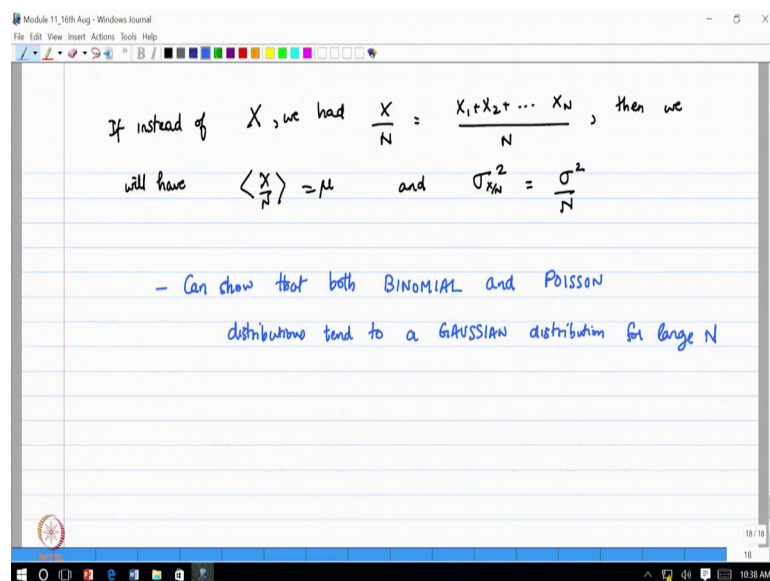 Module 11_16th Aug - Windows Journal
File Edit View Insert Actions Tools Help
If instead of X, we had X/N = (X₁+X₂+ ··· X_N)/N, then we
will have ⟨X/N⟩ = μ and σ_{X/N}² = σ²/N
– Can show that both BINOMIAL and POISSON
distributions tend to a GAUSSIAN distribution for large N
18/18
NPTEL
18
10:38 AM